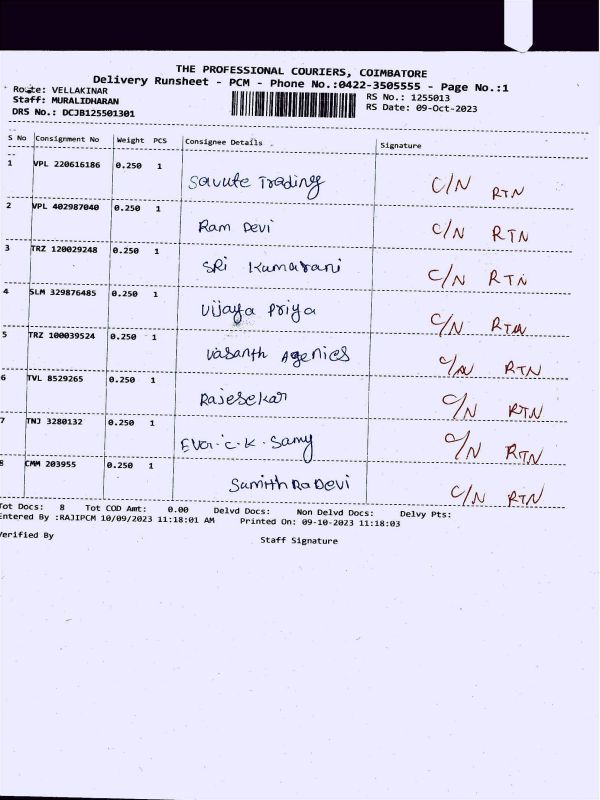 THE PROFESSIONAL COURIERS, COIMBATORE
Delivery Runsheet - PCM - Phone No.:0422-3505555 - Page No.:1
Route: VELLAKINAR
Staff: MURALIDHARAN
DRS No.: DCJB125501301
RS No.: 1255013
RS Date: 09-Oct-2023
S No Consignment No Weight PCS Consignee Details Signature
1 VPL 220616186 0.250 1 Savute Trading C/N RTN
2 VPL 402987040 0.250 1 Ram Devi C/N RTN
3 TRZ 120029248 0.250 1 SRi Kumarani C/N RTN
4 SLM 329876485 0.250 1 Vijaya Priya C/N RTN
5 TRZ 100039524 0.250 1 Vasanth Agenics C/N RTN
6 TVL 8529265 0.250 1 Rajesekar C/N RTN
7 TNJ 3280132 0.250 1 C.K. Samy C/N RTN
8 CMM 203955 0.250 1 Sumithra Devi C/N RTN
Tot Docs: 8 Tot COD Amt: 0.00 Delvd Docs: Non Delvd Docs: Delvy Pts:
Entered By :RAJIPCM 10/09/2023 11:18:01 AM Printed On: 09-10-2023 11:18:03
Verified By Staff Signature